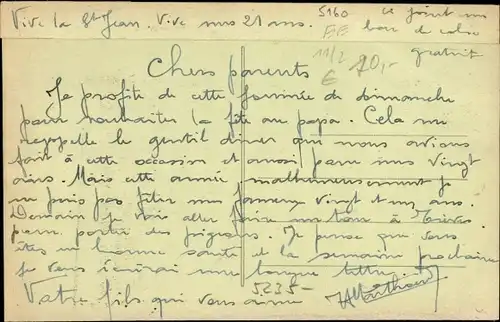 Vive la St Jean. Vive mes 21 ans. 5160 ci joint un
EE bon de colis
11/2 gratuit
€ 10,-
Chers parents
Je profite de cette journée de dimanche
pour souhaiter la fête au papa. Cela me
rappelle le gentil diner que nous avions
fait à cette occasion et aussi pour mes vingt
ans. Mais cette année malheureusement je
ne puis pas fêter mes fameux vingt et un ans.
Demain je vais aller faire un tour à Trèves
pour porter des pigeons. Je pense que vous
êtes en bonne santé et la semaine prochaine
je vous écrirai une longue lettre
5235-
Votre fils qui vous aime